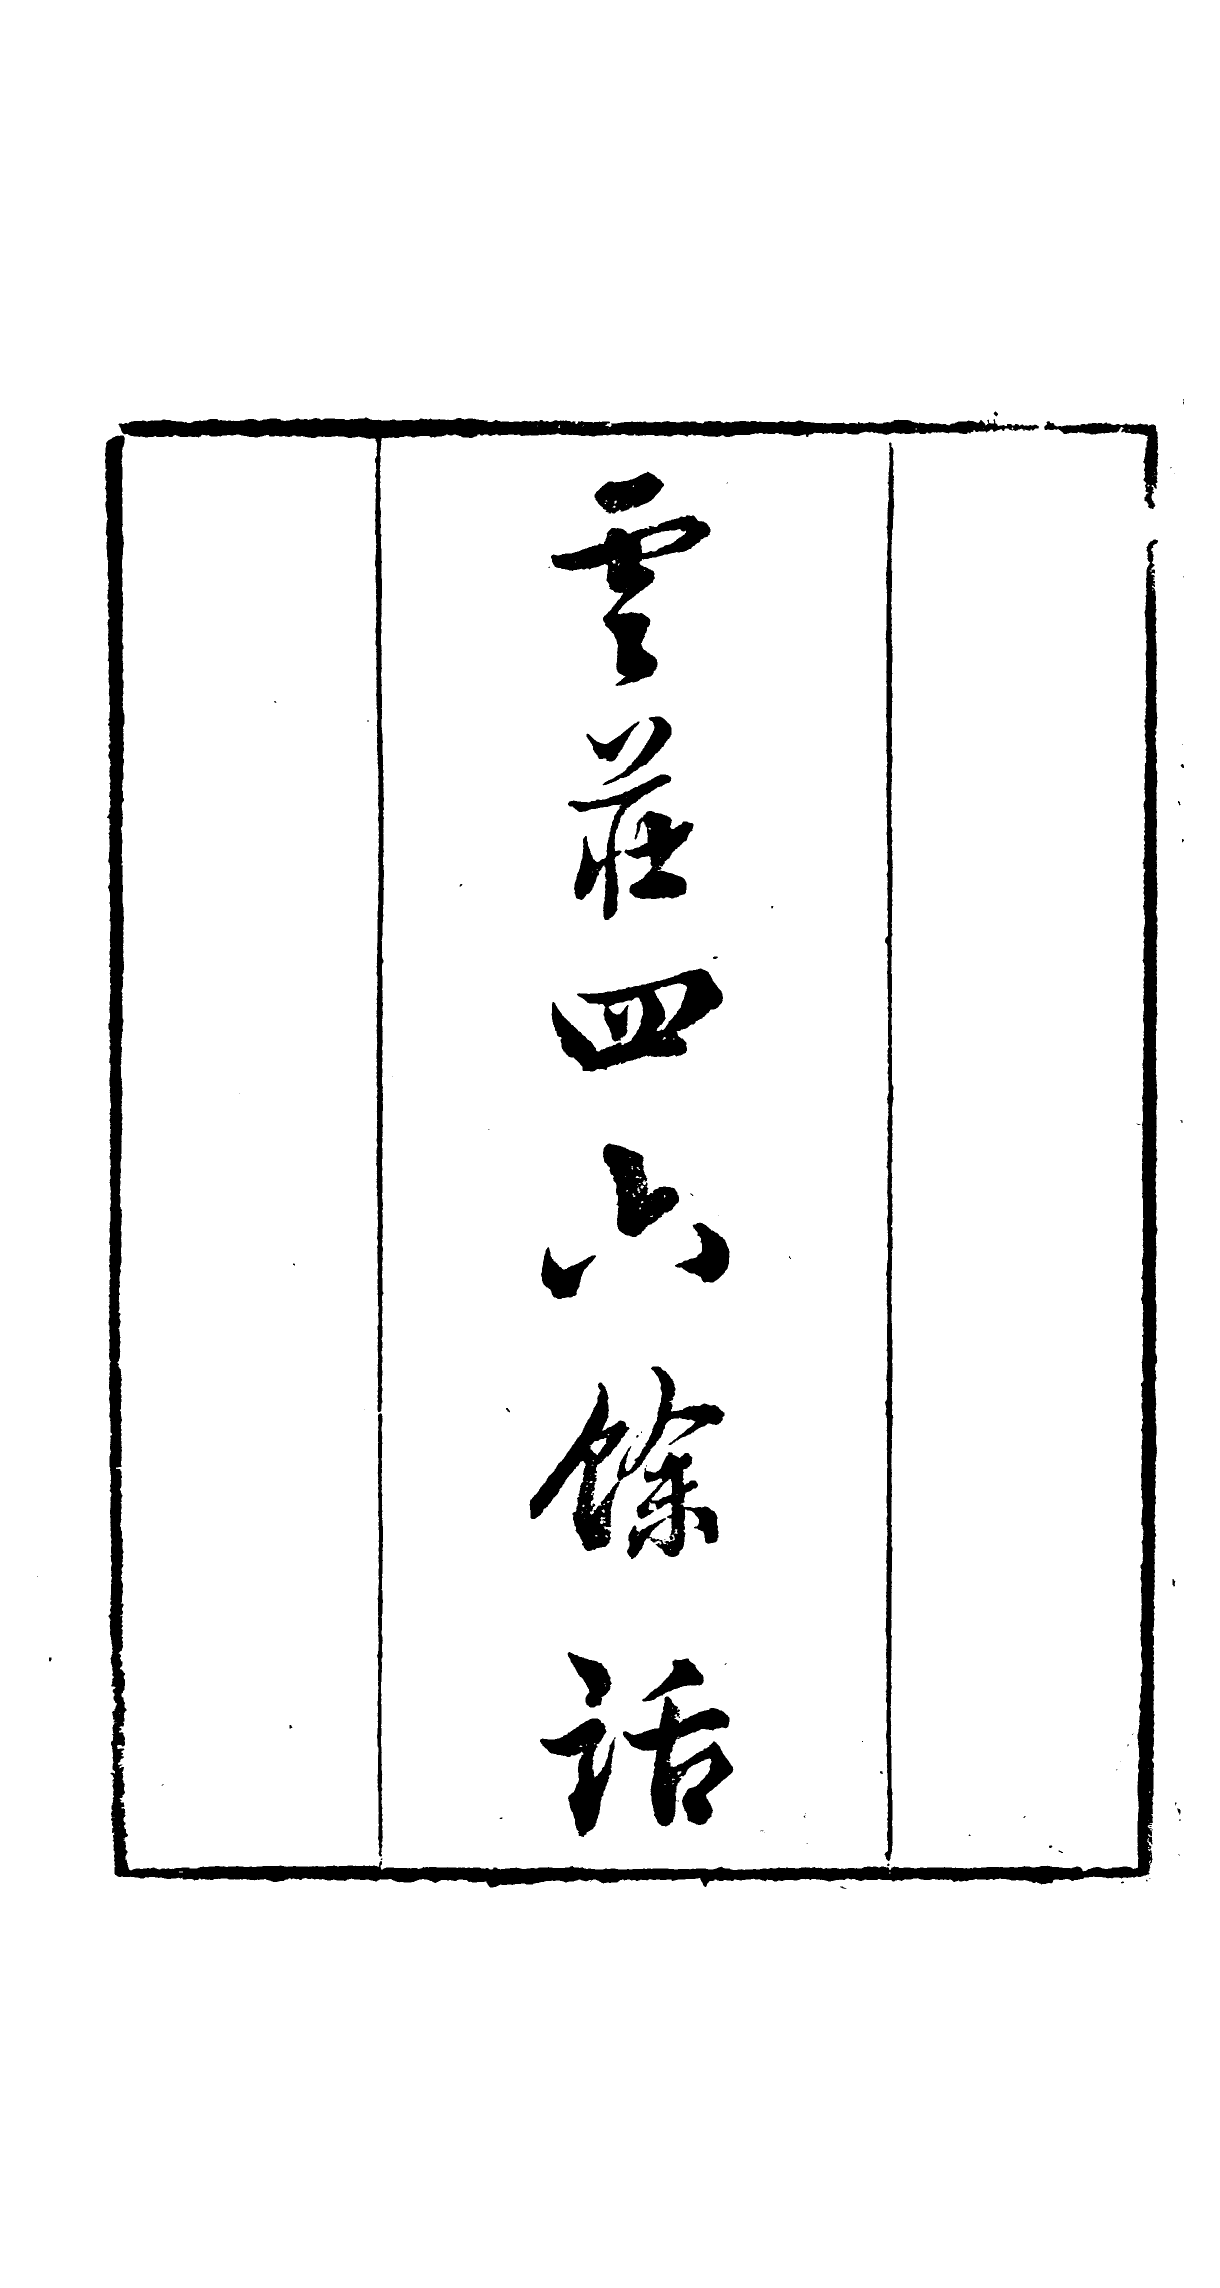 雲莊四六餘話